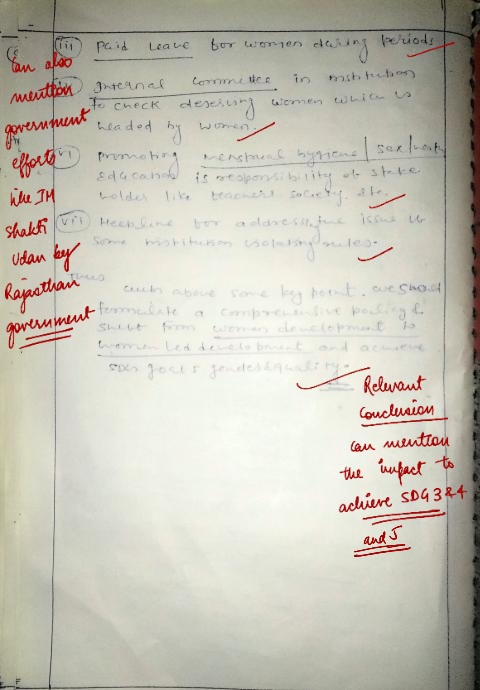 iii) Paid Leave for women during Periods
Internal Committee in institution
to check deserving women which is
headed by women.
v) Promoting menstrual hygiene / sex
Education is responsibility of stake
holder like teachers society. etc.
vii) Helpline for addressing issue if
some institution violating rules.
Thus
with above some key point. we should
formulate a comprehensive policy &
shift from women development to
women led development and achieve
SDG goal 5 gender equality.
Can also
mention
government
efforts
like IM
Shakti
Udan by
Rajasthan
government
Relevant
Conclusion
can mention
the impact to
achieve SDG 3 & 4
and 5